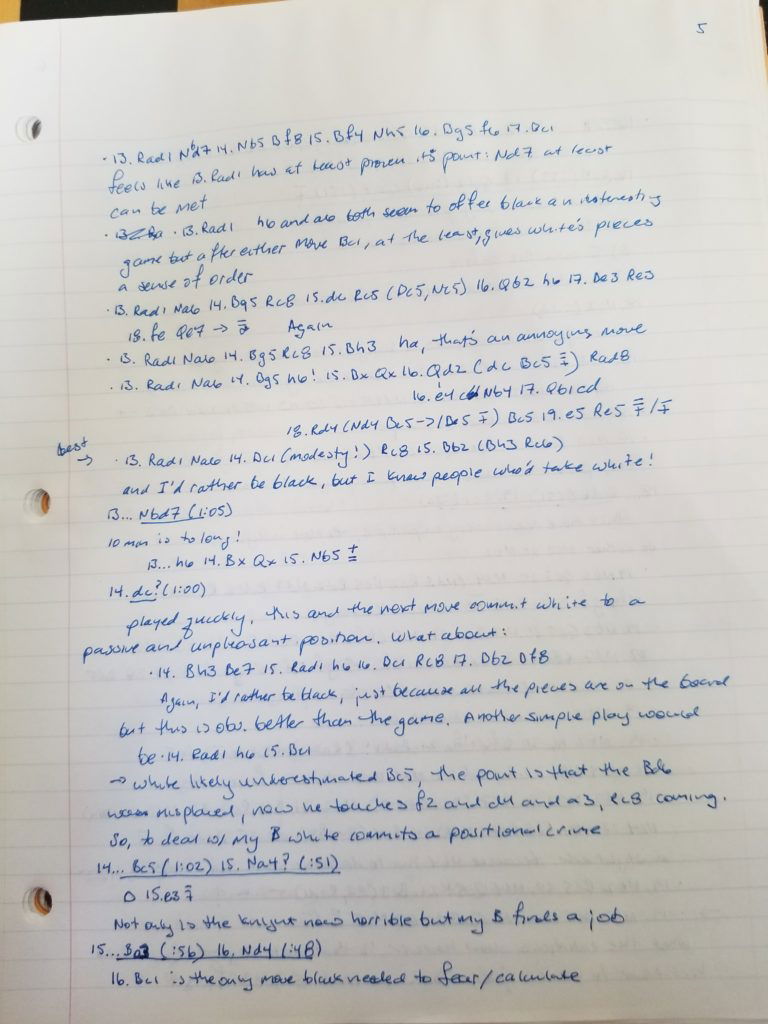 5
· 13. Rad1 Nbd7 14. Nb5 Bf8 15. Bf4 Nh5 16. Bg5 f6 17. Bc1
feels like 13. Rad1 has at least proven its point: Nd7 at least
can be met
· 13. Rad1 h6 and a6 both seem to offer black an interesting
game but after either move Bc1, at the least, gives white's pieces
a sense of order
· 13. Rad1 Na6 14. Bg5 Rc8 15. dc Rc5 (Bc5, Nc5) 16. Qb2 h6 17. Be3 Re3
18. fe Qe7 → ∓ Again
· 13. Rad1 Na6 14. Bg5 Rc8 15. Bh3 ha, that's an annoying move
· 13. Rad1 Na6 14. Bg5 h6! 15. Bx Qx 16. Qd2 (dc Bc5 ∓) Rad8
16. e4 Nb4 17. Qb1 cd
18. Rd4 (Nd4 Bc5->/Be5 ∓) Bc5 19. e5 Re5 ∓/∓
best → · 13. Rad1 Na6 14. Bc1 (modesty!) Rc8 15. Bb2 (Bh3 Rc6)
and I'd rather be black, but I know people who'd take white!
13... Nbd7 (1:05)
10 min is to long!
13... h6 14. Bx Qx 15. Nb5 ±
14. dc? (1:00)
played quickly, this and the next move commit white to a
passive and unpleasant position. what about:
· 14. Bh3 Be7 15. Rad1 h6 16. Bc1 Rc8 17. Bb2 Bf8
Again, I'd rather be black, just because all the pieces are on the board
but this is obv. better than the game. Another simple play would
be · 14. Rad1 h6 15. Bc1
→ white likely underestimated Bc5, the point is that the Bd6
misplaced, now he touches f2 and d4 and a3, Rc8 coming.
So, to deal w/ my B white commits a positional crime
14... Bc5 (1:02) 15. Na4? (:51)
□ 15. e3 ∓
Not only is the knight now horrible but my B finds a job
15... Ba3 (:56) 16. Nd4 (:48)
16. Bc1 is the only move black needed to fear/calculate